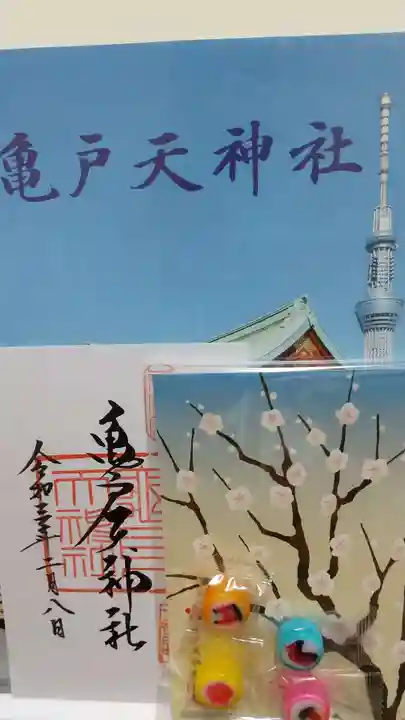 亀戸天神社
亀戸天神社
令和三年二月八日